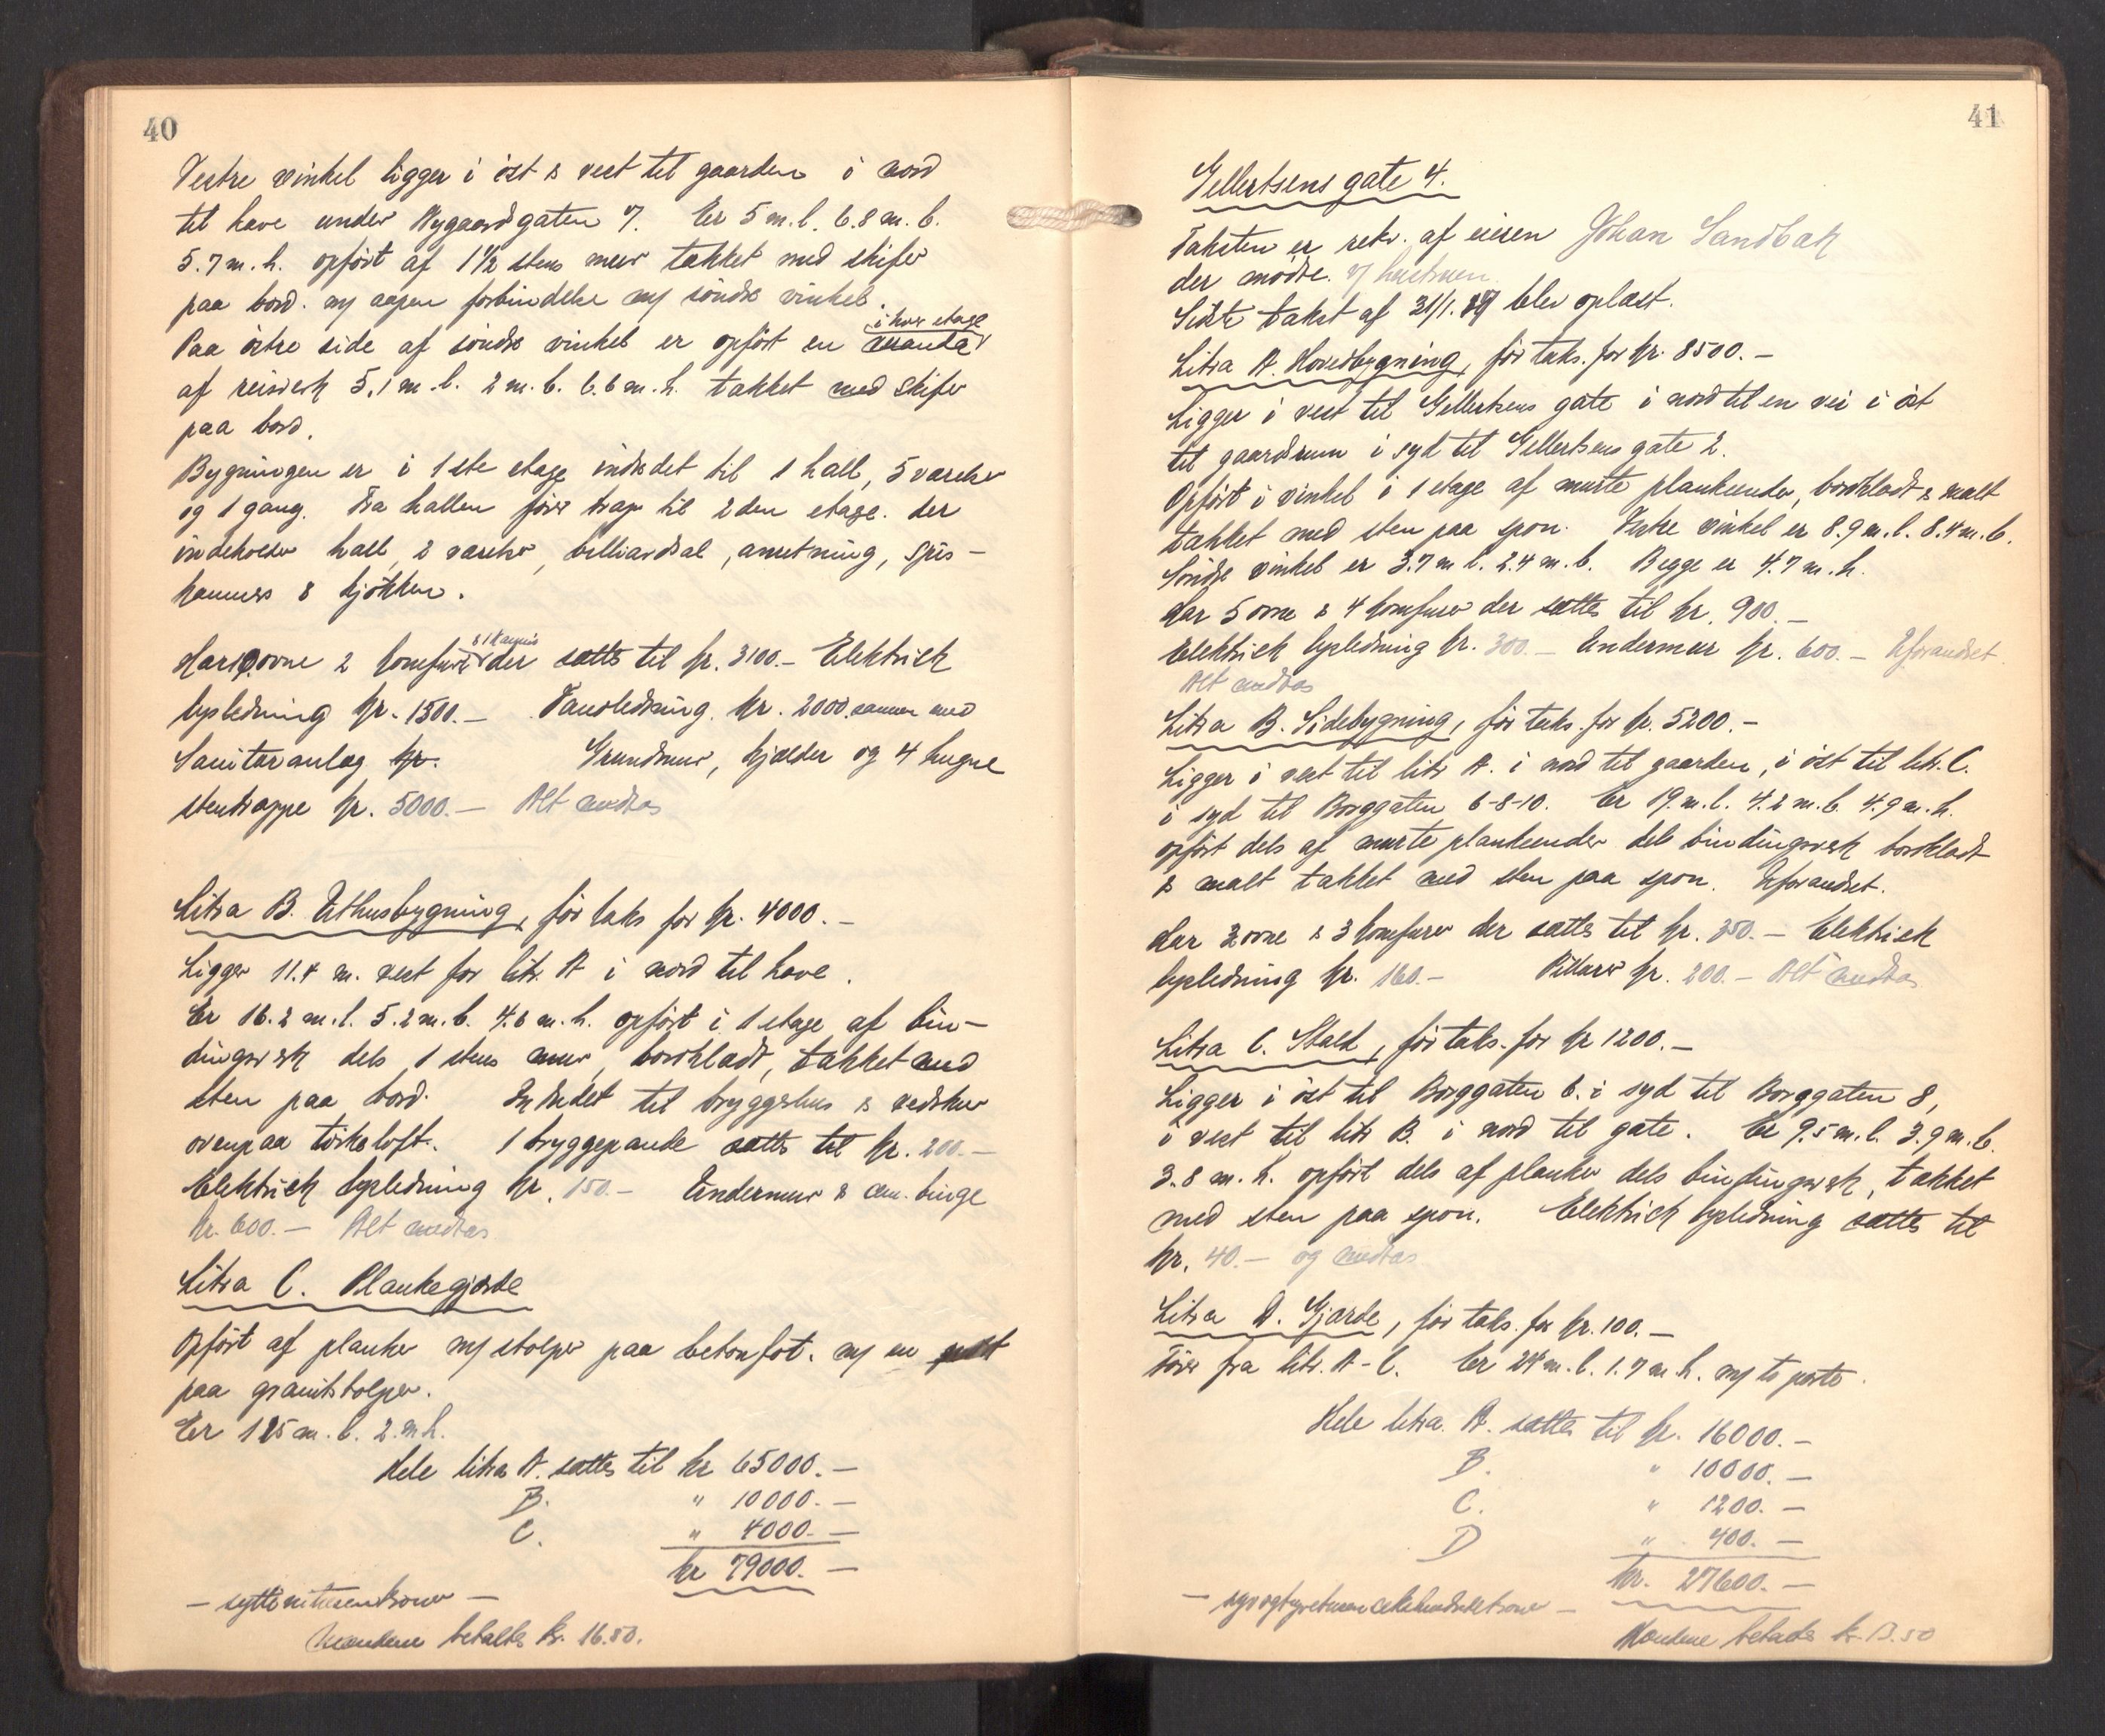 40
Vestre vinkel ligger i öst & vest til gaarden i nord
til have under Nygaardgaten 7. Er 5 m. l. 6.8 m. b.
5.7 m. h. opfört af 1½ stens mur takket med skifer
paa bord. m/ aapen forbindelse m/ söndre vinkel.
i hver etage
Paa östre side af söndre vinkel er opfört en veranda
af reisverk 5.1 m. l. 2 m. b. 6.6 m. h. takket med skifer
paa bord.
Bygningen er i 1ste etage indredet til 1 hall, 5 værelser
og 1 gang. Fra hallen förer trap til 2den etage. der
indeholder hall, 2 værelser, billiardsal, anretning, spis-
kammers & kjökken.
& 1 kamin
Har 10 ovne 2 komfurer der sættes til kr. 3100.- Elektrisk
lysledning kr. 1500.- Vandledning kr. 2000 sammen med
Sanitæranlæg kr. Grundmur, kjælder og 4 hugne
stentrappe kr. 5000.- Alt medtas
Litra B. Uthusbygning, för taks for kr. 4000.-
Ligger 11.4 m. vest for litr. A i nord til have.
Er 16.2 m. l. 5.2 m. b. 4.6 m. h. opfört i 1 etage af bin-
dingsverk dels 1 stens mur, bordklædt, takket med
sten paa bord. Indredet til bryggerhus & vedskur
ovenpaa törkeloft. 1 bryggepande sættes til kr. 200.-
Elektrisk lysledning kr. 150.- Undermur & cem. binge
kr. 600.- Alt medtas
Litra C. Plankegjærde
Opfört af planker m/ stolper paa betonfot. m/ en port
paa granitstolper.
Er 125 m. l. 2. m h.
Hele litra A. sættes til kr 65000.-
B. " 10000.-
C. " 4000.-
kr 79000.-
- syttinitusenkroner -
Mændene betaltes kr. 16.50.
41
Gellertsens gate 4.
Taksten er rekv. af eieren Johan Sandbak
der mödte. v/ hustruen
Sidste takst af 31/1. 17 blev oplæst.
Litra A. Hovedbygning, för taks. for kr. 8500.-
Ligger i vest til Gellertsens gate i nord til en vei i öst
til gaardsrum i syd til Gellertsens gate 2.
Opfört i vinkel i 1 etage af murte plankeender, bordklædt & malt
takket med sten paa spon. Vestre vinkel er 8.9 m. l. 8.4 m. b.
Söndre vinkel er 3.7 m l. 2.4 m. b. Begge er 4.7 m. h.
Har 5 ovne & 4 komfurer der sættes til kr. 900.-
Elektrisk lysledning kr. 300.- Undermur kr. 600.- Uforandret.
Alt medtas
Litra B. Sidebygning, för taks. for kr. 5200.-
Ligger i vest til litr A. i nord til gaarden, i öst til litr. C.
i syd til Borggaten 6-8-10. Er 19. m. l. 4.2 m. b. 4.9 m. h.
opfört dels af murte plankeender dels bindingsverk bordklædt
& malt takket med sten paa spon. Uforandret.
Har 3 ovne & 3 komfurer der sættes til kr. 350.- Elektrisk
lysledning kr. 160.- Pillarer kr. 200.- Alt medtas
Litra C. Stald, för taks. for kr 1200.-
Ligger i öst til Borggaten 6. i syd til Borggaten 8,
i vest til litr B. i nord til gate. Er 9.5 m. l. 3.9 m. b.
3.8 m. h. opfört dels af planker dels bindingsverk, takket
med sten paa spon. Elektrisk lysledning sættes til
kr. 40.- og medtas
Litra D. Gjærde, för taks. for kr. 100.-
Förer fra litr. A-C. Er 24 m. l. 1.7 m. h. m/ to porte.
Hele litra A. sættes til kr. 16000.-
B. " 10000.-
C. " 1200.-
D " 400.-
kr. 27600.-
- syvogtyvetusensekshundredekroner -
Mændene betaltes kr. 13.50